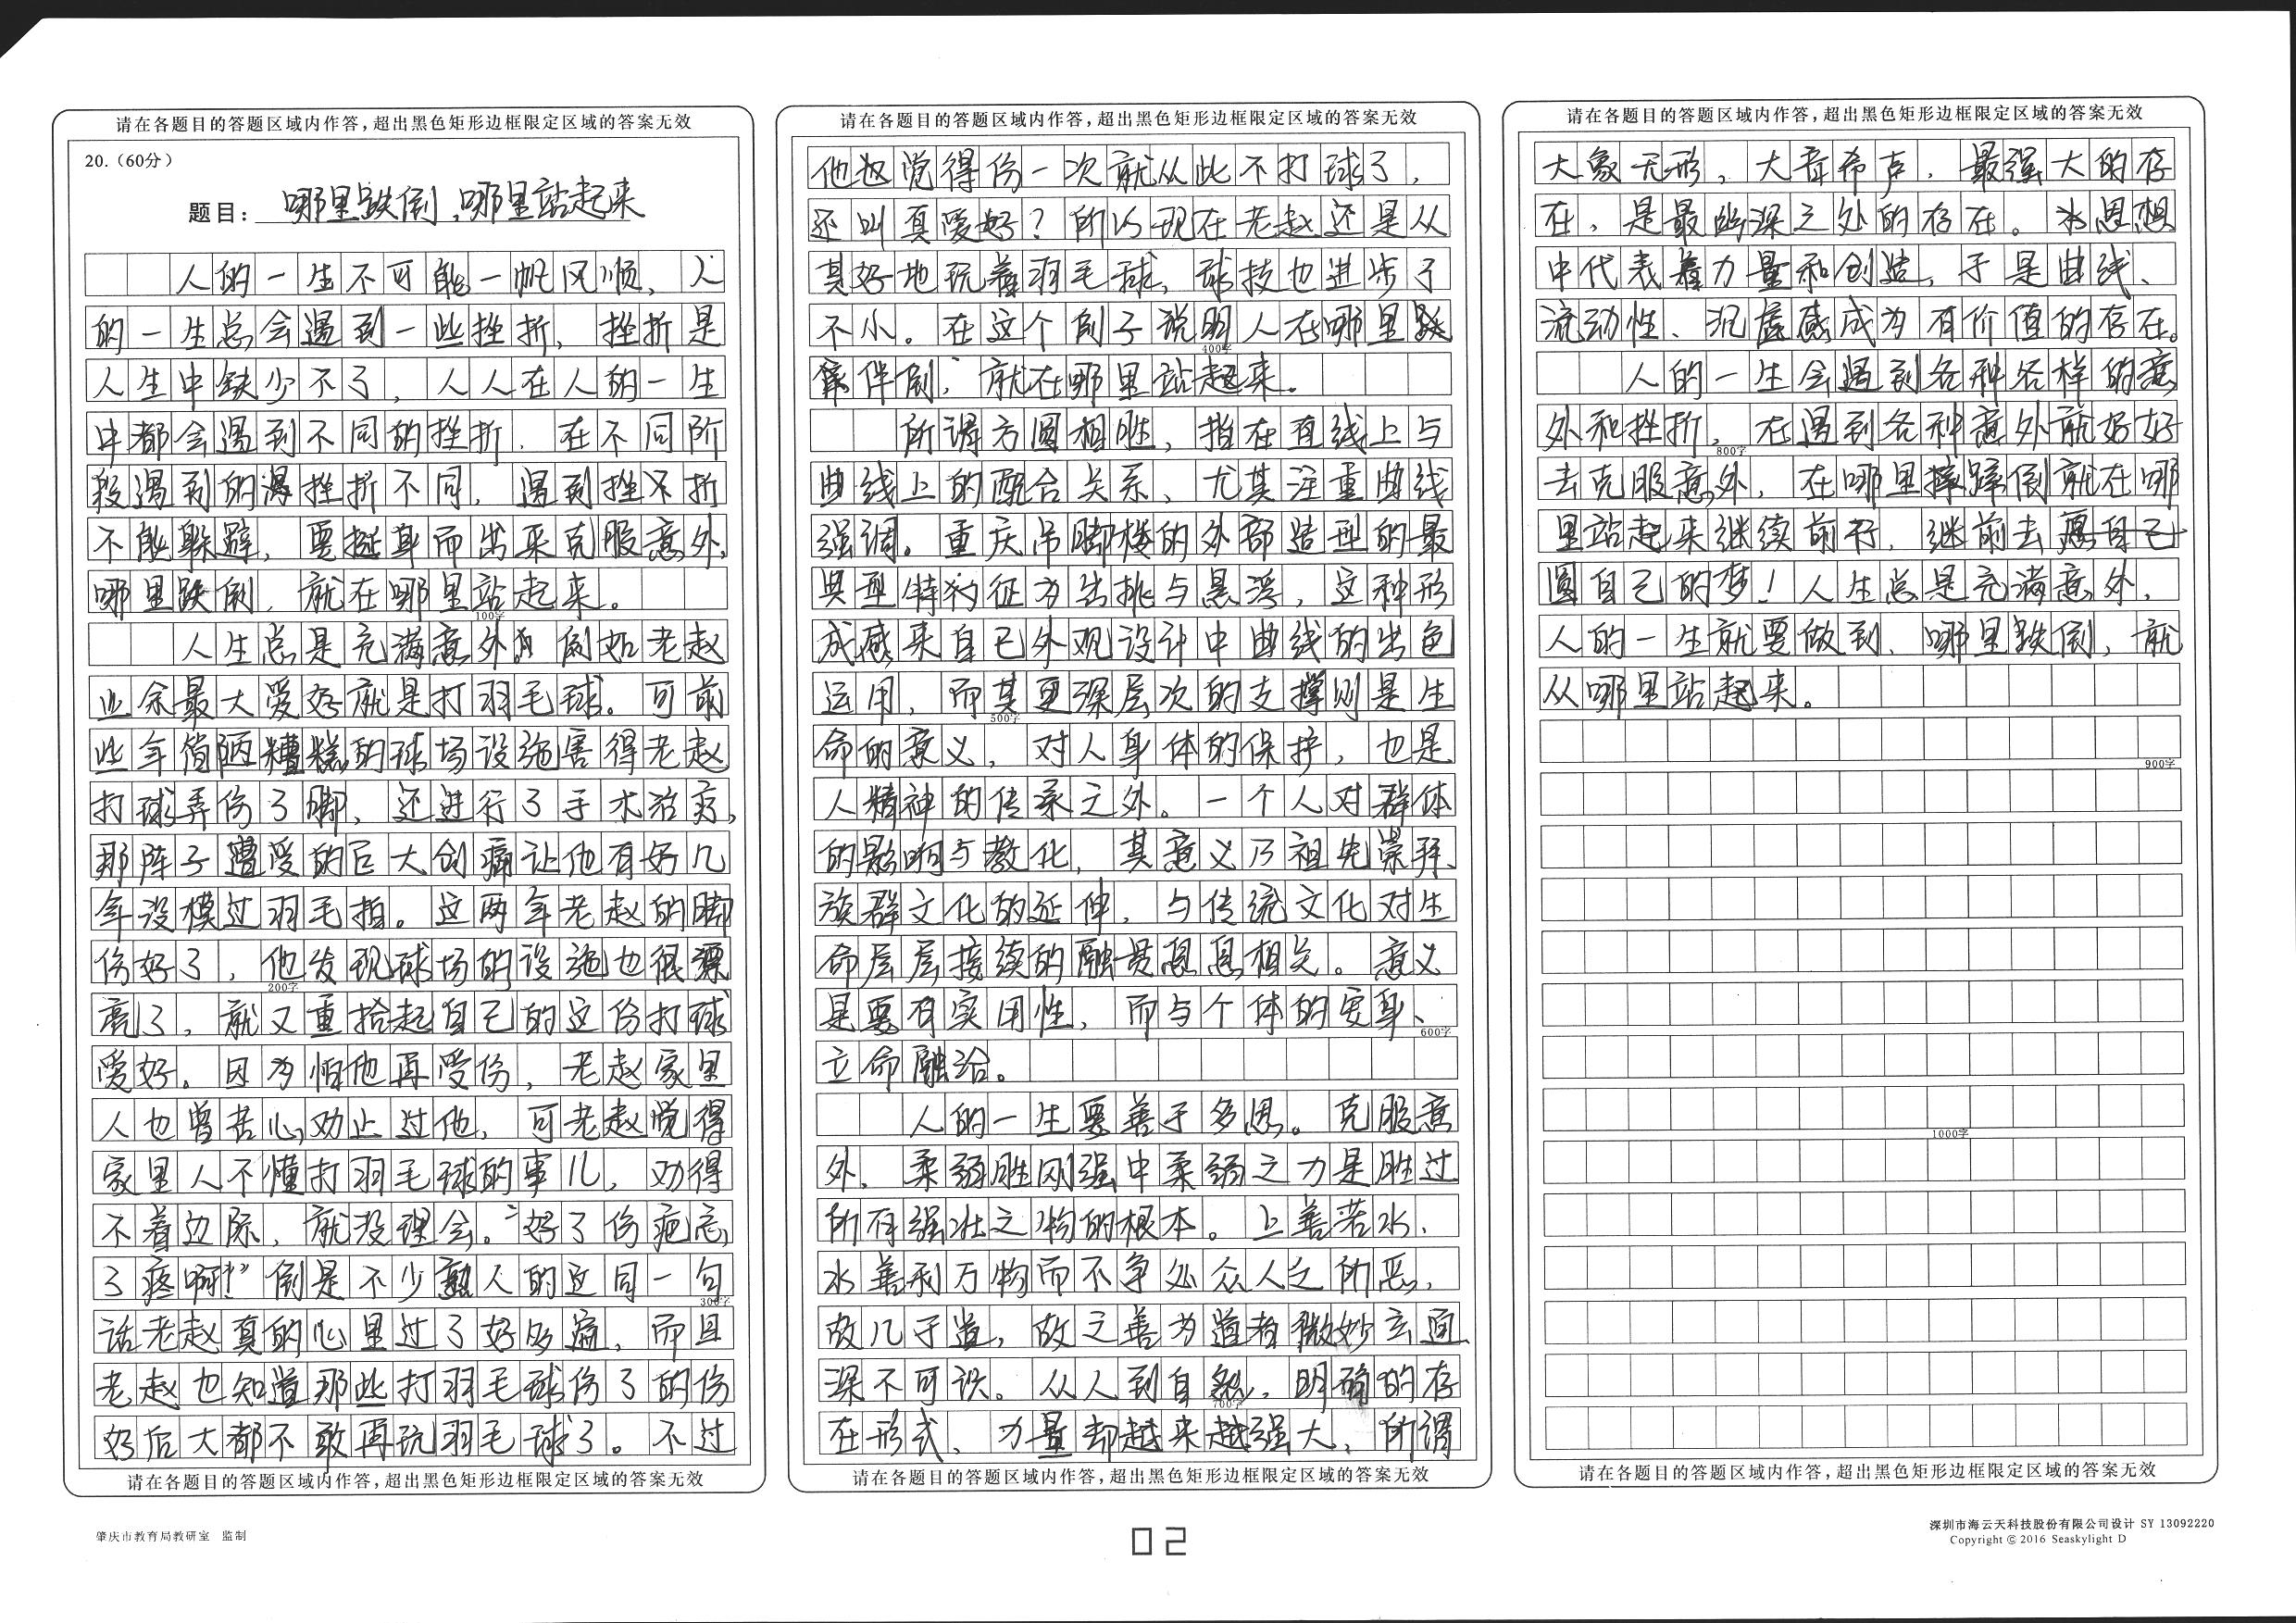 请在各题目的答题区域内作答，超出黑色矩形边框限定区域的答案无效
20.（60分）
题目：哪里跌倒，哪里站起来
人的一生不可能一帆风顺，人
的一生总会遇到一些挫折，挫折是
人生中缺少不了，人人在人的一生
中都会遇到不同的挫折．在不同阶
段遇到的挫折不同，遇到挫不折
不能躲避，要挺身而出来克服意外，
哪里跌倒，就在哪里站起来。
100字
人生总是充满意外。例如老赵
业余最大爱好就是打羽毛球。可前
些年简陋糟糕的球场设施害得老赵
打球弄伤了脚，还进行了手术治疗，
那阵子遭受的巨大创痛让他有好几
年没摸过羽毛拍。这两年老赵的脚
伤好了，他发现球场的设施也很漂
200字
亮了，就又重拾起自己的这份打球
爱好。因为怕他再受伤，老赵家里
人也曾苦心劝止过他，可老赵觉得
家里人不懂打羽毛球的事儿，劝得
不着边际，就没理会。“好了伤疤忘
了疼啊!”倒是不少熟人的这同一句
300字
话老赵真的心里过了好多遍，而且
老赵也知道那些打羽毛球伤了的伤
好后大都不敢再玩羽毛球了。不过
请在各题目的答题区域内作答，超出黑色矩形边框限定区域的答案无效
请在各题目的答题区域内作答，超出黑色矩形边框限定区域的答案无效
他也觉得伤一次就从此不打球了，
还叫真爱好？所以现在老赵还是从
其好地玩着羽毛球，球技也进步了
不小。在这个例子说明人在哪里跌
400字
倒，就在哪里站起来。
所谓方圆相胜，指在直线上与
曲线上的配合关系、尤其注重曲线
强调。重庆吊脚楼的外部造型的最
典型特征为出挑与悬浮，这种形
成感来自己外观设计中曲线的出色
运用，而其更深层次的支撑则是生
500字
命的意义，对人身体的保护，也是
人精神的传承之外。一个人对群体
的影响与教化，其意义乃祖先崇拜、
族群文化的延伸，与传统文化对生
命层层接续的融贯息息相关。意义
是要有实用性，而与个体的安身、
600字
立命融洽。
人的一生要善于多思。克服意
外．柔弱胜刚强中柔弱之力是胜过
所有强壮之物的根本。上善若水．
水善利万物而不争处众人之所恶，
故几于道，故之善为道者微妙玄通
深不可识。从人到自然，明确的存
700字
在形式、力量却越来越强大，所谓
请在各题目的答题区域内作答，超出黑色矩形边框限定区域的答案无效
请在各题目的答题区域内作答，超出黑色矩形边框限定区域的答案无效
大象无形，大音希声．最强大的存
在，是最幽深之处的存在。水思想
中代表着力量和创造，于是曲线、
流动性、沉虚感成为有价值的存在。
人的一生会遇到各种各样的意
外和挫折，在遇到各种意外就好好
800字
去克服意外，在哪里摔倒就在哪
里站起来继续前行，继前去
圆自己的梦！人生总是充满意外，
人的一生就要做到，哪里跌倒，就
从哪里站起来。
900字
1000字
请在各题目的答题区域内作答，超出黑色矩形边框限定区域的答案无效
肇庆市教育局教研室 监制
02
深圳市海云天科技股份有限公司设计 SY 13092220
Copyright © 2016 Seaskylight D